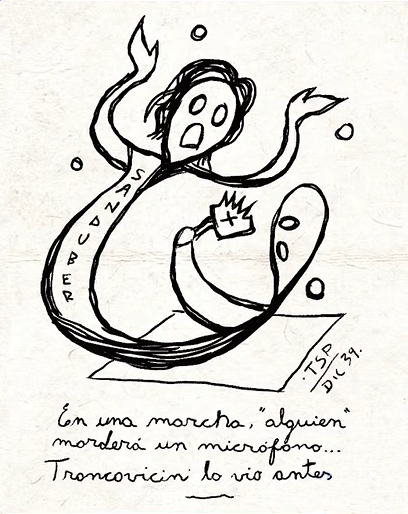 SANDUBER
TSP
DIC 39.
En una marcha, "alguien"
morderá un micrófono...
Troncovicin lo vio antes